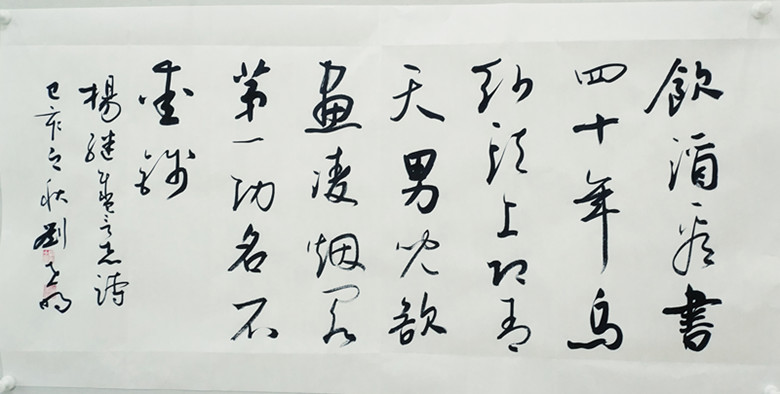 飲酒看書
四十年烏
紗頭上即青
天男兒欲
畫凌烟閣
第一功名不
愛錢
楊继盛言志詩
己亥之秋劉明